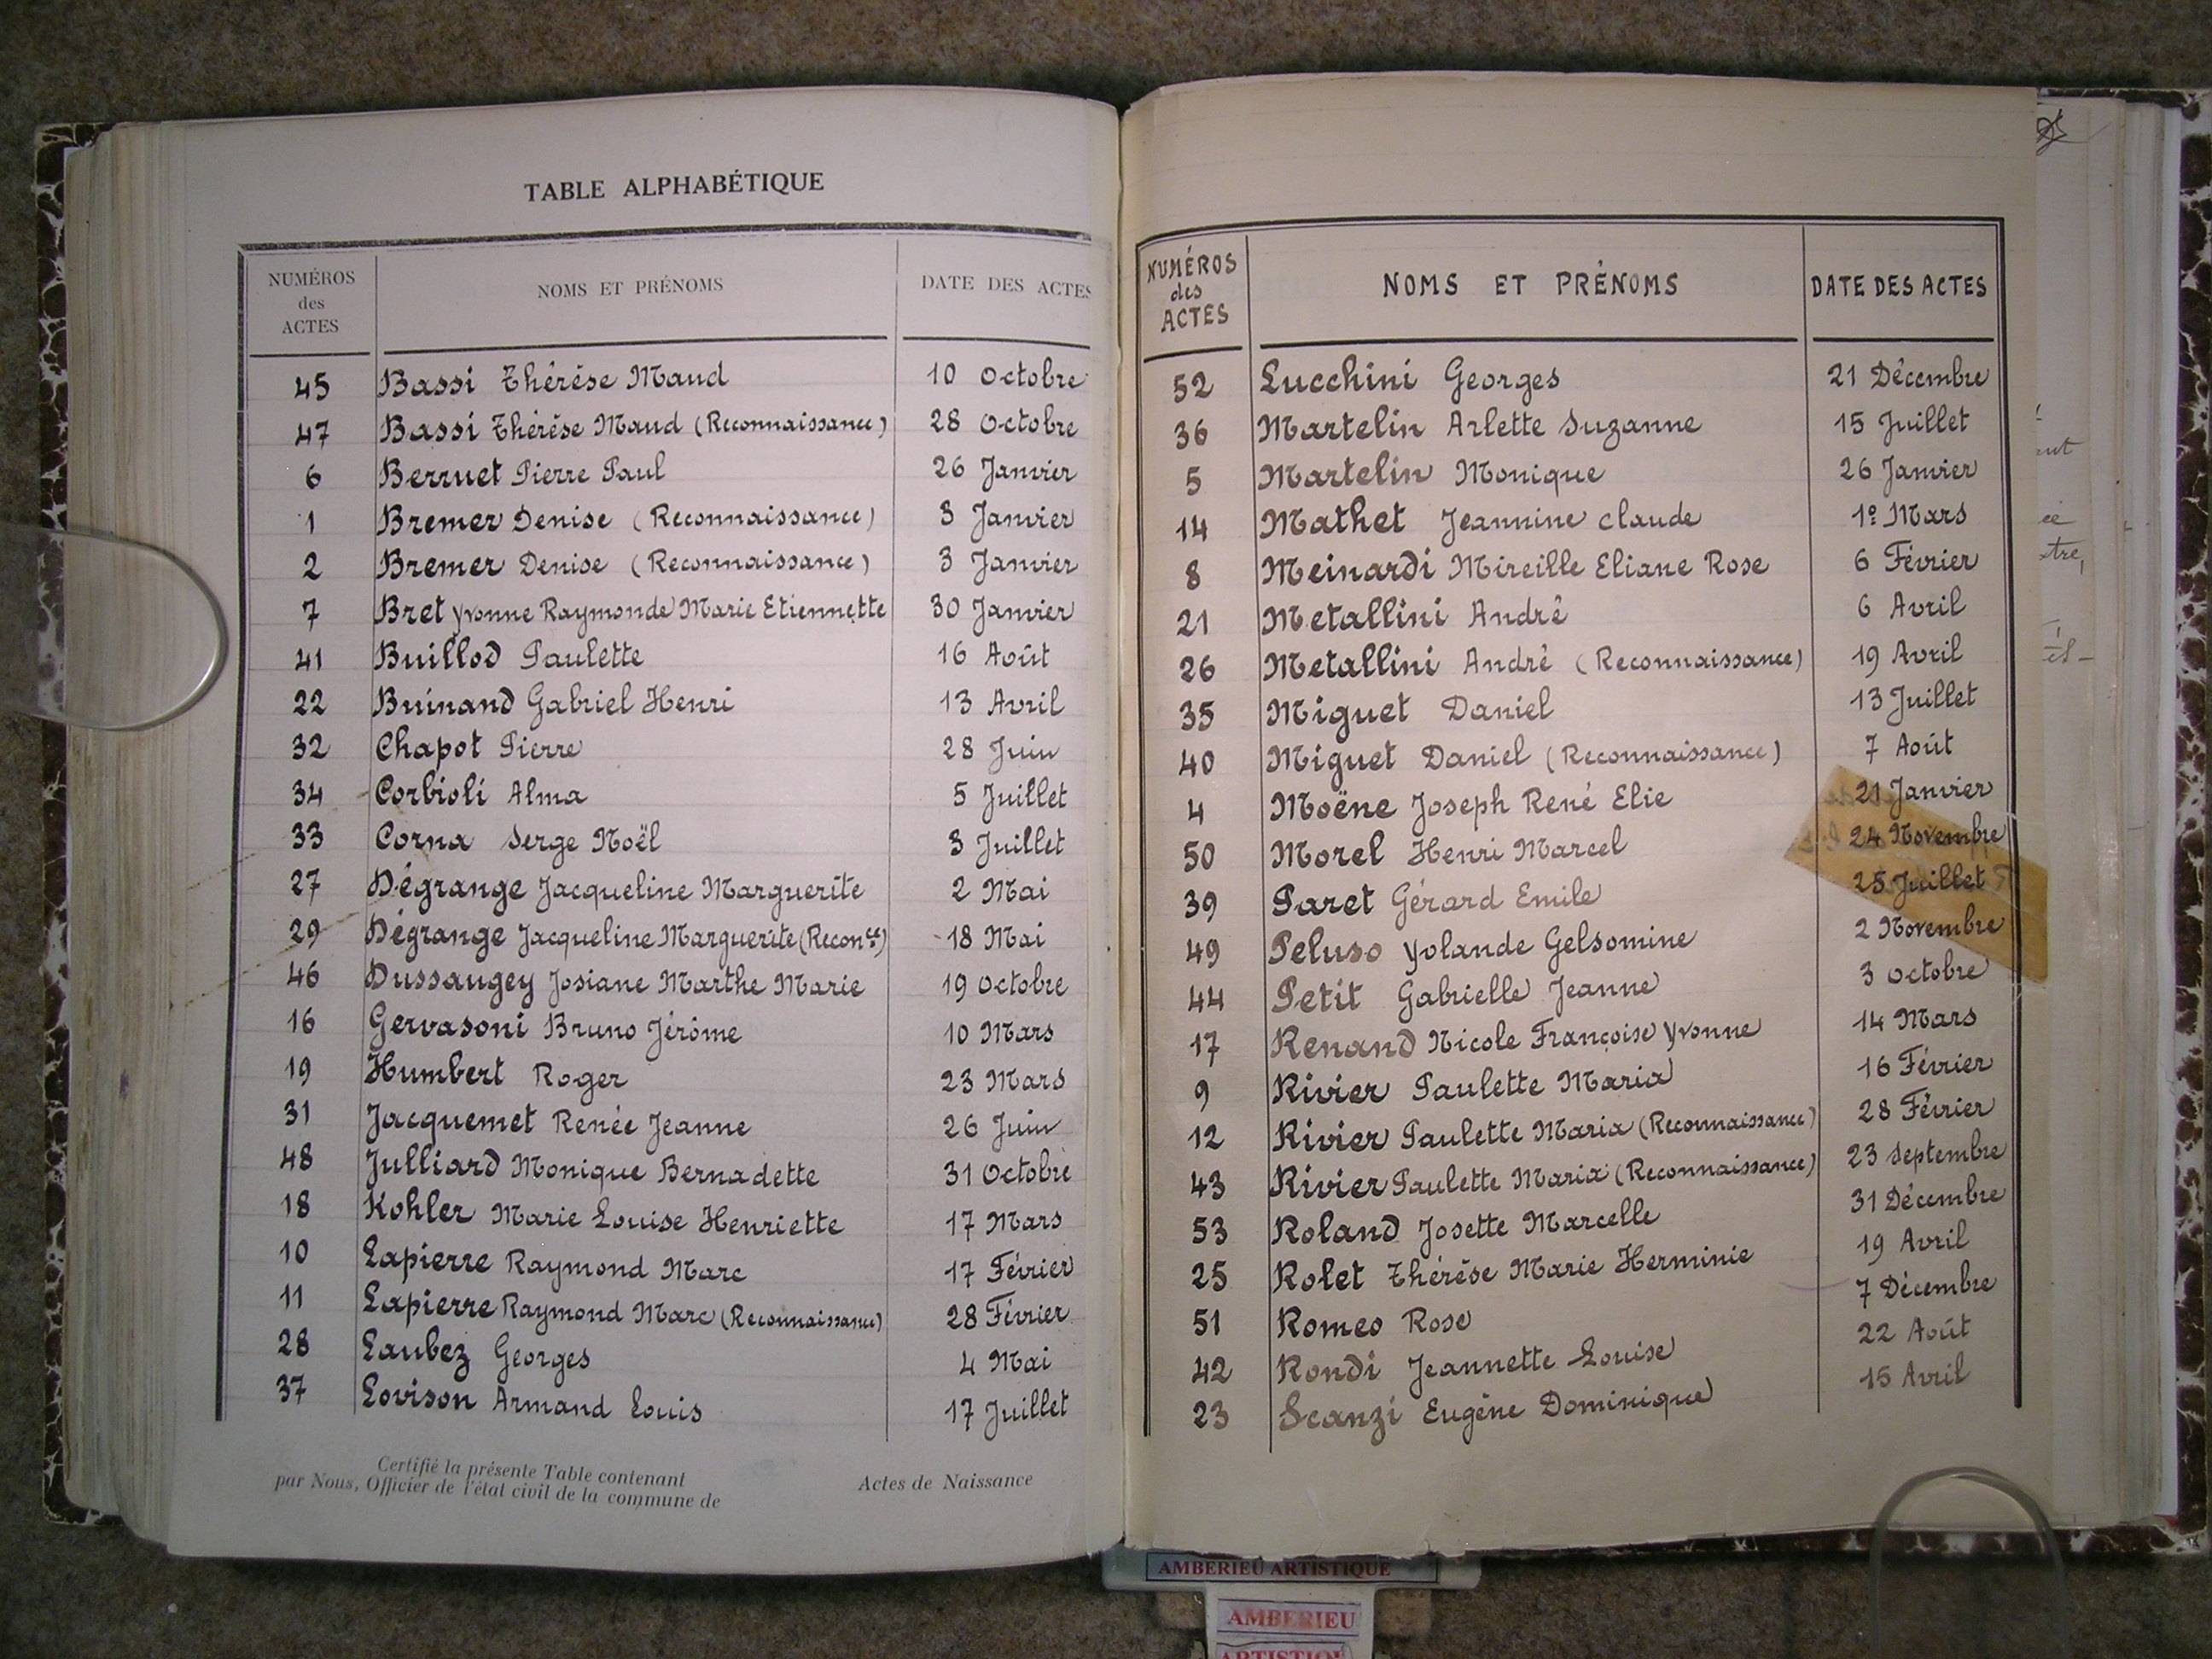 TABLE ALPHABÉTIQUE
NUMÉROS
des
ACTES
NOMS ET PRÉNOMS
DATE DES ACTES
45 Bassi Thérèse Maud 10 Octobre
47 Bassi Thérèse Maud (Reconnaissance) 28 Octobre
6 Berruet Pierre Paul 26 Janvier
1 Bremer Denise (Reconnaissance) 3 Janvier
2 Bremer Denise (Reconnaissance) 3 Janvier
7 Bret Yvonne Raymonde Marie Etiennette 30 Janvier
41 Buillod Paulette 16 Août
22 Buinand Gabriel Henri 13 Avril
32 Chapot Pierre 28 Juin
34 Corbioli Alma 5 Juillet
33 Corna Serge Noël 3 Juillet
27 Dégrange Jacqueline Marguerite 2 Mai
29 Dégrange Jacqueline Marguerite (Reconce) 18 Mai
46 Dussaugey Josiane Marthe Marie 19 Octobre
16 Gervasoni Bruno Jérôme 10 Mars
19 Humbert Roger 23 Mars
31 Jacquemet Renée Jeanne 26 Juin
48 Julliard Monique Bernadette 31 Octobre
18 Kohler Marie Louise Henriette 17 Mars
10 Lapierre Raymond Marc 17 Février
11 Lapierre Raymond Marc (Reconnaissance) 28 Février
28 Laubez Georges 4 Mai
37 Lovison Armand Louis 17 Juillet
Certifié la présente Table contenant Actes de Naissance
par Nous, Officier de l'état civil de la commune de
NUMÉROS
des
ACTES
NOMS ET PRÉNOMS
DATE DES ACTES
52 Lucchini Georges 21 Décembre
36 Martelin Arlette Suzanne 15 Juillet
5 Martelin Monique 26 Janvier
14 Mathet Jeannine Claude 1e Mars
8 Meinardi Mireille Eliane Rose 6 Février
21 Metallini André 6 Avril
26 Metallini André (Reconnaissance) 19 Avril
35 Miguet Daniel 13 Juillet
40 Miguet Daniel (Reconnaissance) 7 Août
4 Moëne Joseph René Elie 21 Janvier
50 Morel Henri Marcel 24 Novembre
39 Paret Gérard Emile 25 Juillet
49 Peluso Yolande Gelsomine 2 Novembre
44 Petit Gabrielle Jeanne 3 Octobre
17 Renand Nicole Françoise Yvonne 14 Mars
9 Rivier Paulette Maria 16 Février
12 Rivier Paulette Maria (Reconnaissance) 28 Février
43 Rivier Paulette Maria (Reconnaissance) 23 Septembre
53 Roland Josette Marcelle 31 Décembre
25 Rolet Thérèse Marie Herminie 19 Avril
51 Romeo Rose 7 Décembre
42 Rondi Jeannette Louise 22 Août
23 Scanzi Eugène Dominique 15 Avril
AMBERIEU ARTISTIQUE
AMBERIEU
ARTISTIQUE